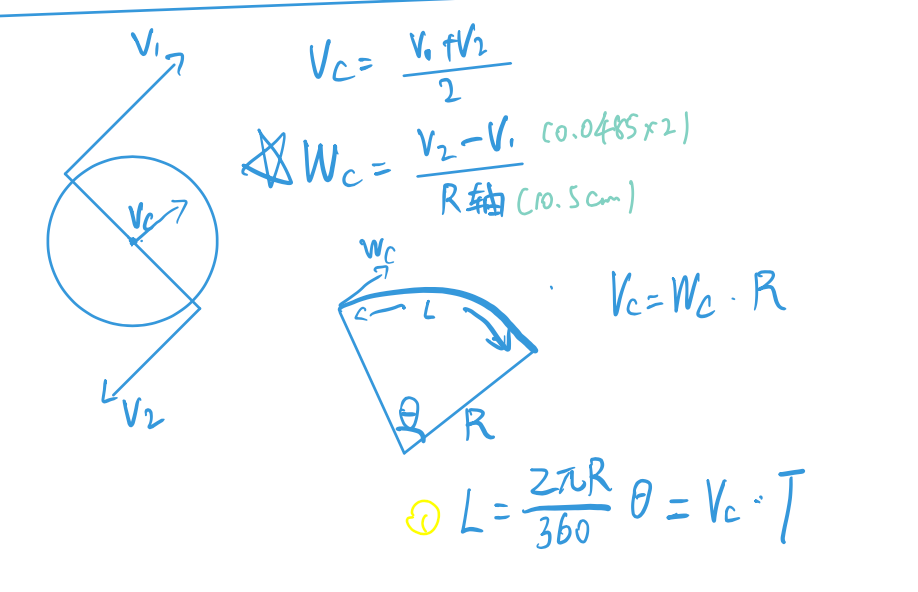 V₁
V_C = (V₁+V₂)/2
☆ W_C = (V₂-V₁)/R轴 (0.0485×2) (10.5cm)
V_C
V₂
W_C
L
θ
R
V_C = W_C · R
L = (2πR/360) θ = V_C · T